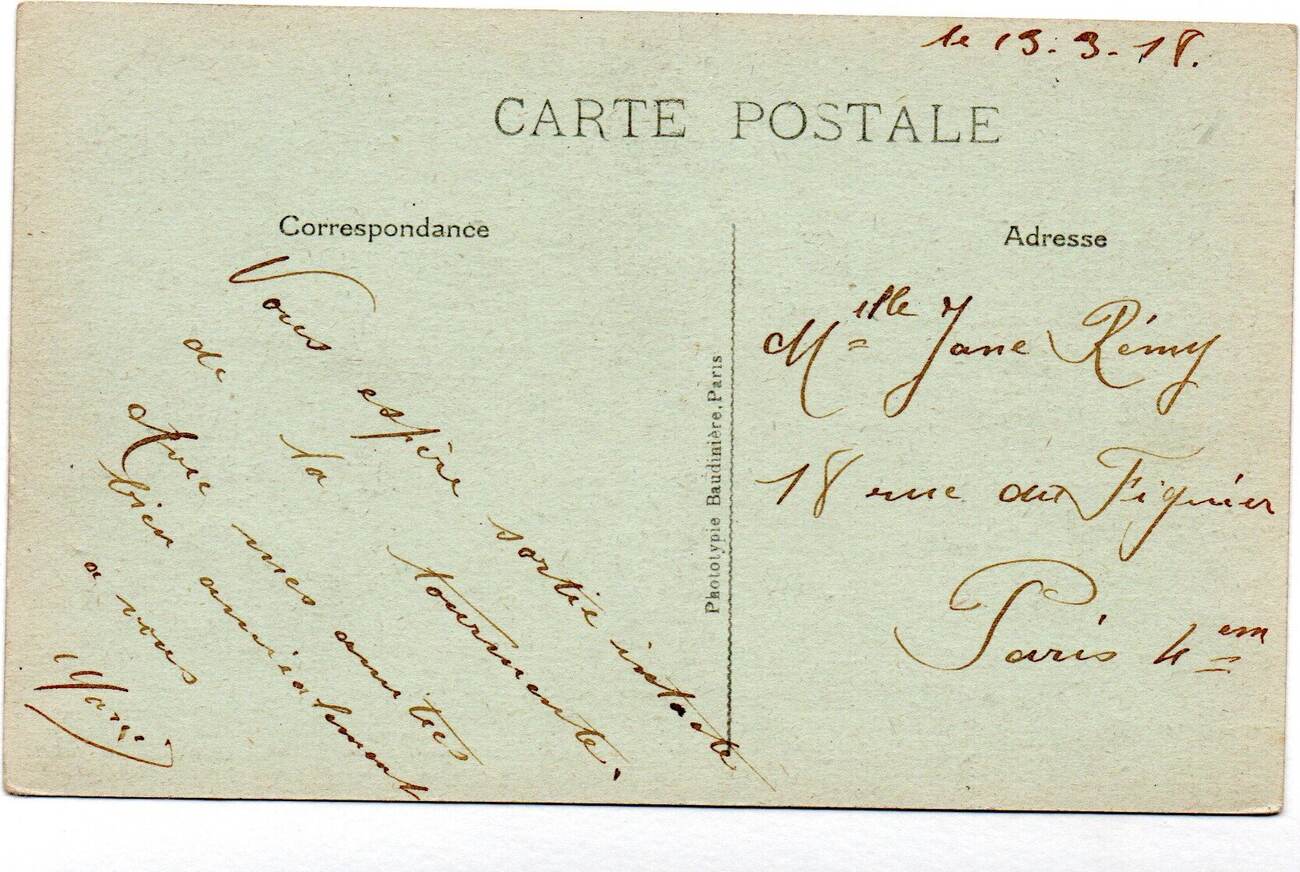 le 13-3-18.
CARTE POSTALE
Correspondance
Vous espère sortie intacte
de la tourmente.
Avec mes amitiés
bien amicalement
a vous
Phototypie Baudinière, Paris
Adresse
Melle Jane Rémy
18 rue du Figuier
Paris 4em